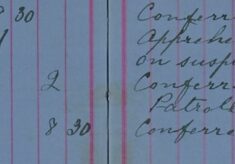 8 30 Conferr
Apprehe
on susp
2 Conferr
Patrol
8 30 Conferr